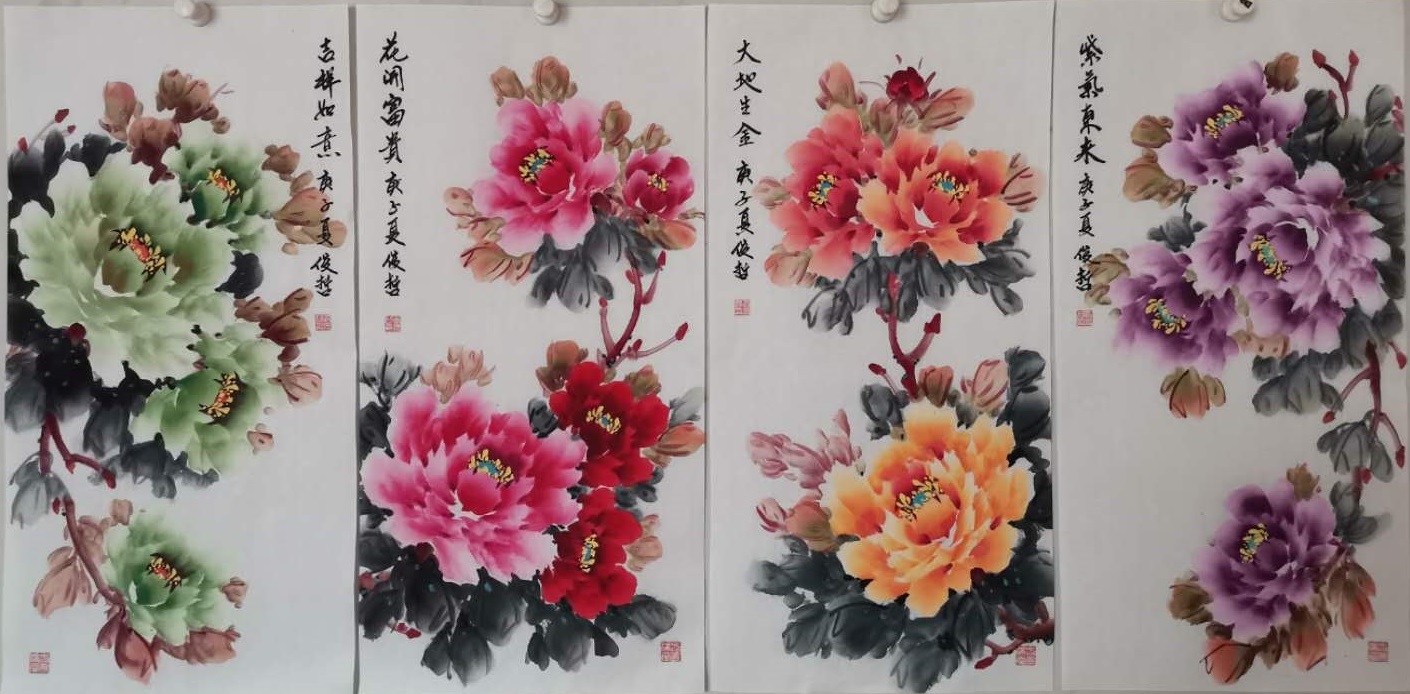 吉祥如意 庚子夏 俊哲
花開富貴 庚子夏 俊哲
大地生金 庚子夏 俊哲
紫氣東来 庚子夏 俊哲